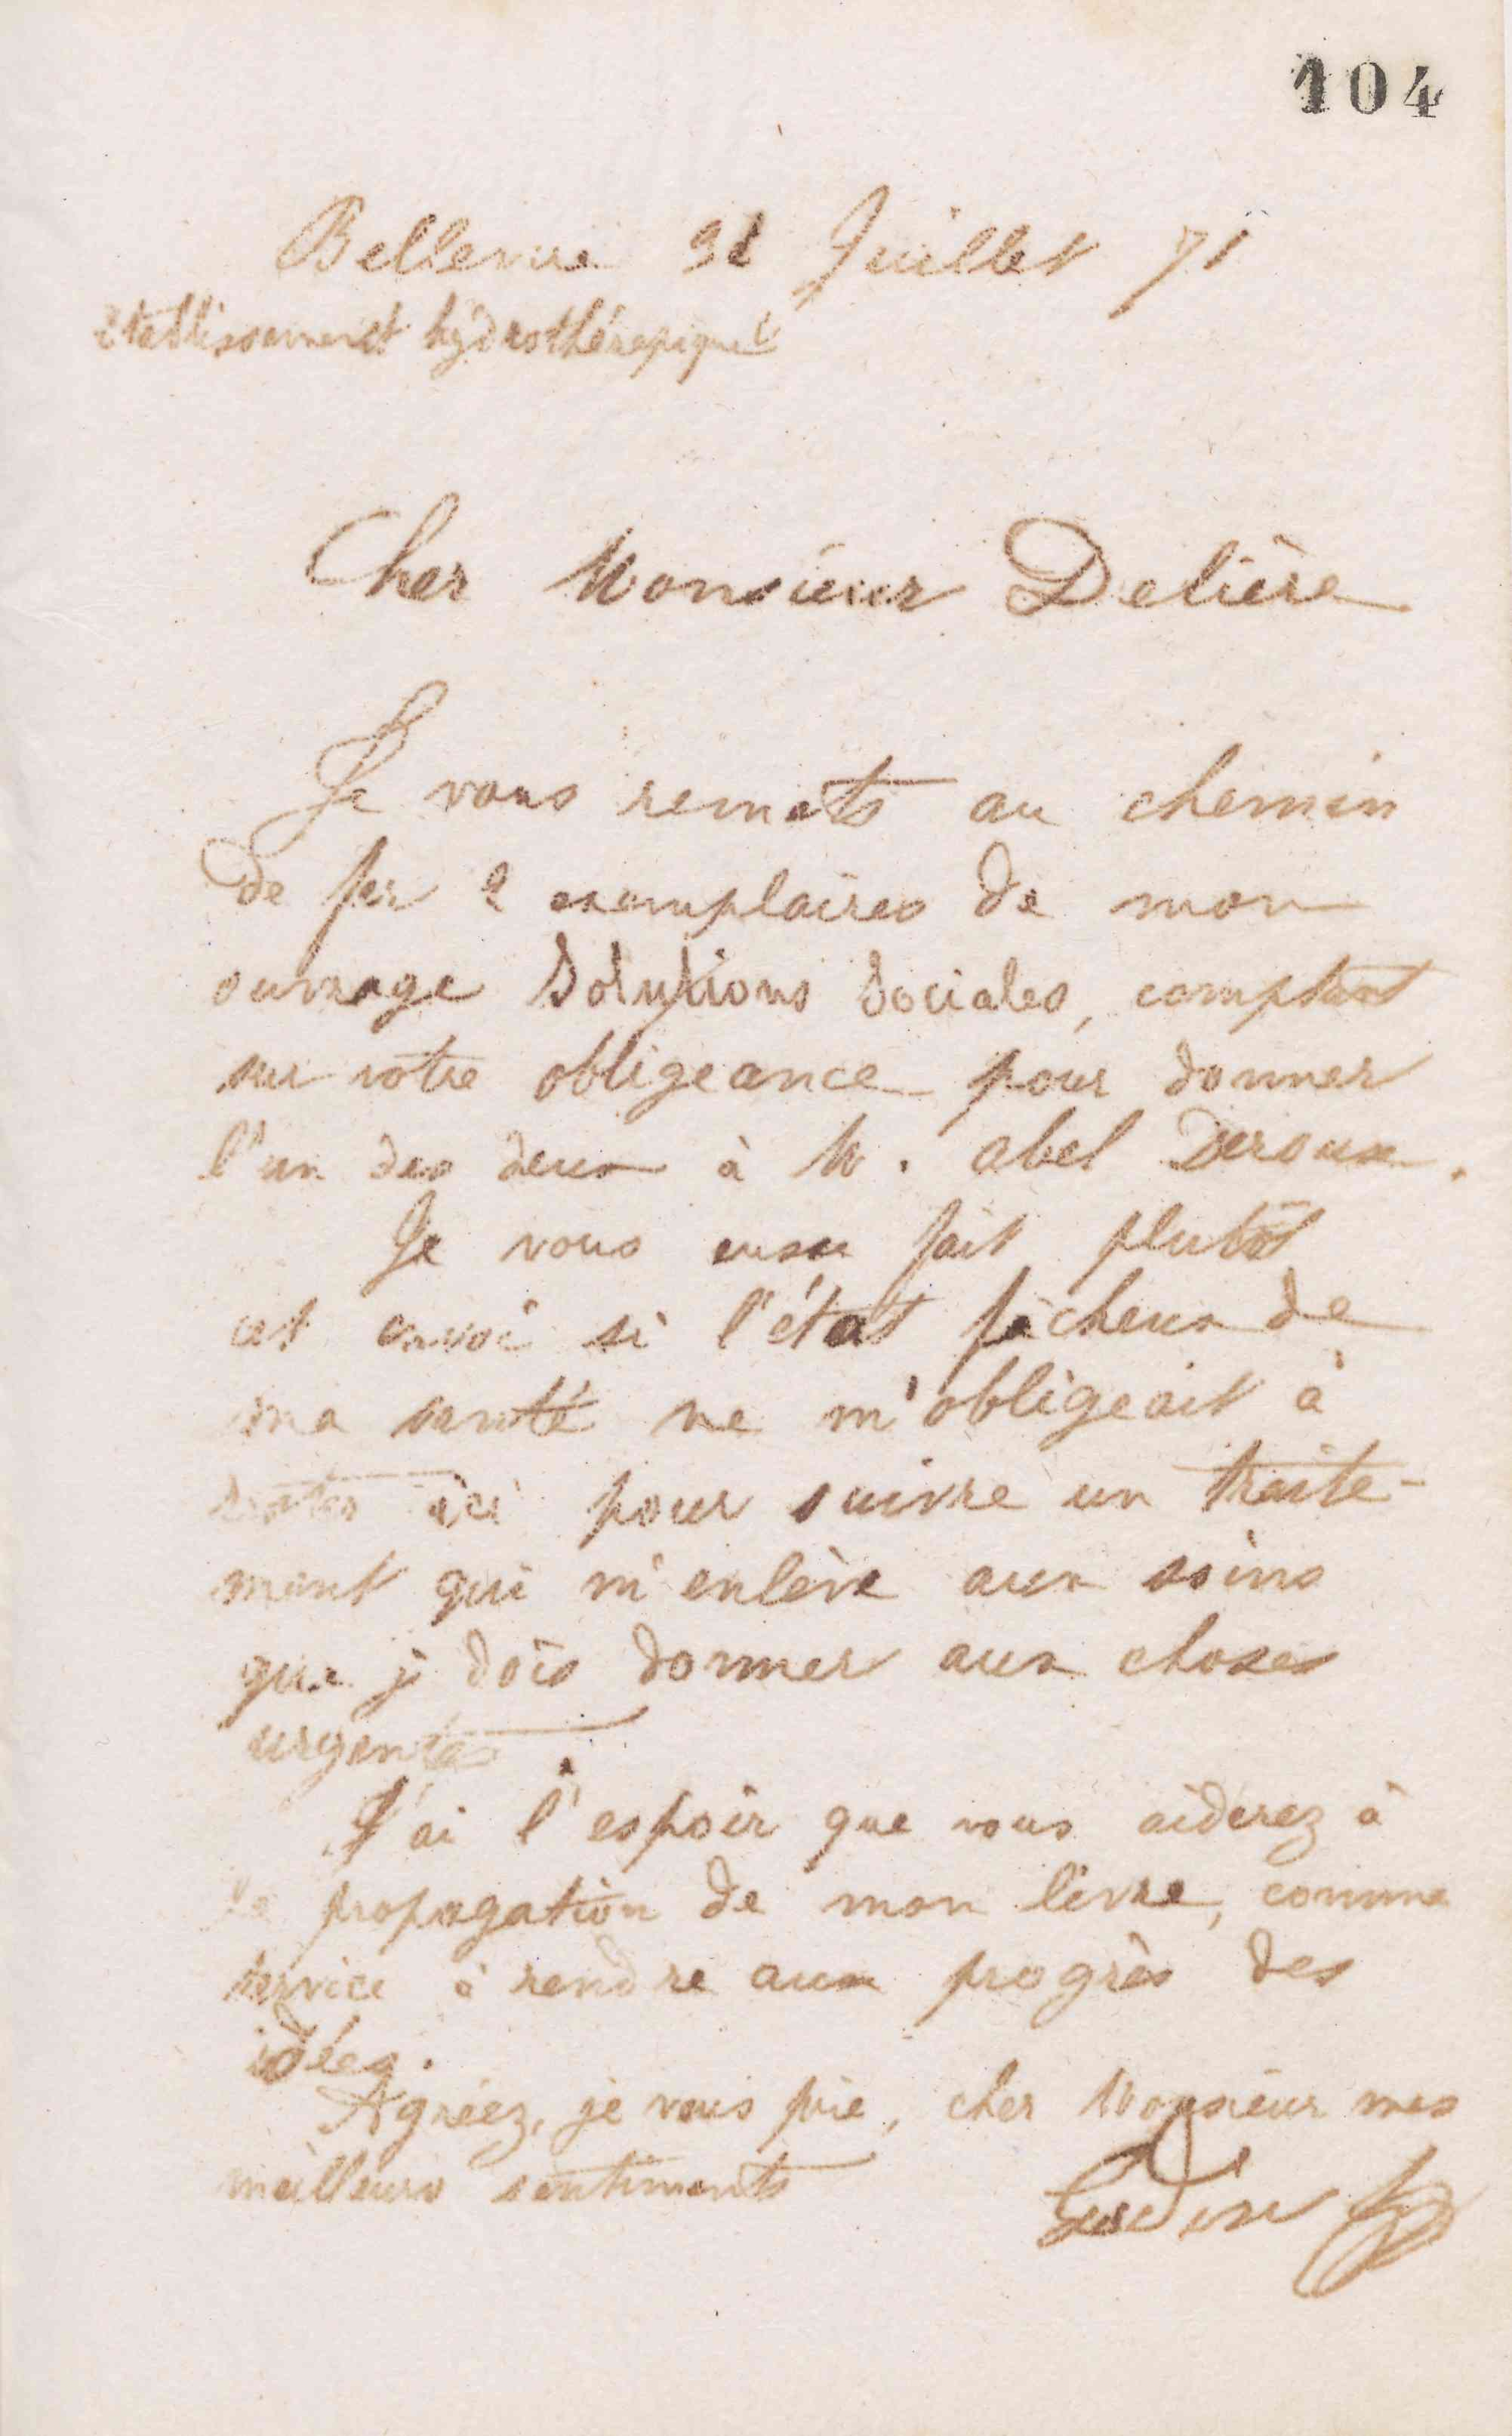 104
Bellevue 31 Juillet 71
établissement hydrothérapique
Cher Monsieur Delière
Je vous remets au chemin
de fer 2 exemplaires de mon
ouvrage Solutions Sociales, comptant
sur votre obligeance pour donner
l'un des deux à M. abel Deroux.
Je vous eusse fait plutôt
cet envoi si l'état fâcheux de
ma santé ne m'obligeait à
rester ici pour suivre un traite-
ment qui m'enlève aux soins
que je dois donner aux choses
urgentes.
J'ai l'espoir que vous aiderez à
la propagation de mon livre, comme
service à rendre aux progrès des
idées.
Agréez, je vous prie, cher Monsieur mes
meilleurs sentiments
Godin